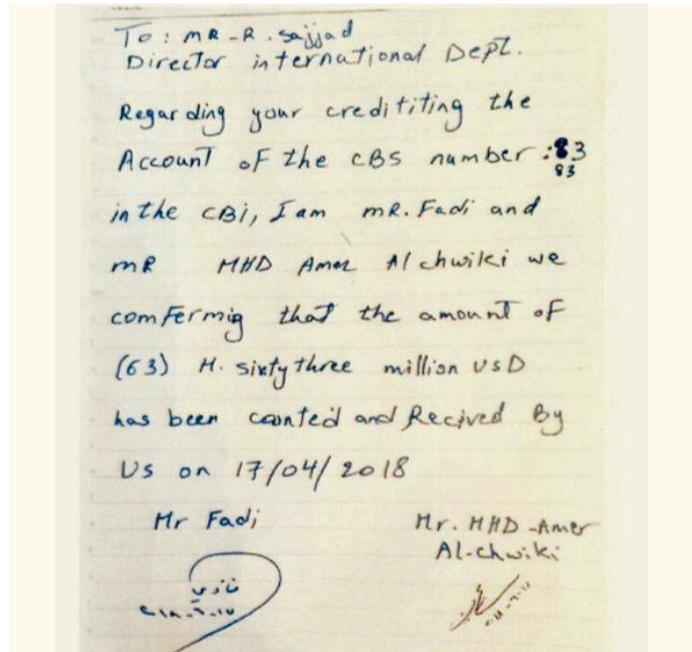 To: MR-R. Sajjad
Director international Dept.
Regarding your credititing the
Account of the CBS number : 83
83
in the CBi, I am mR. Fadi and
mR MHD Amer Alchwiki we
comfermig that the amount of
(63) M. sixty three million USD
has been counted and Recived By
Us on 17/04/2018
Mr Fadi
Mr. MHD-Amer
Al-chwiki